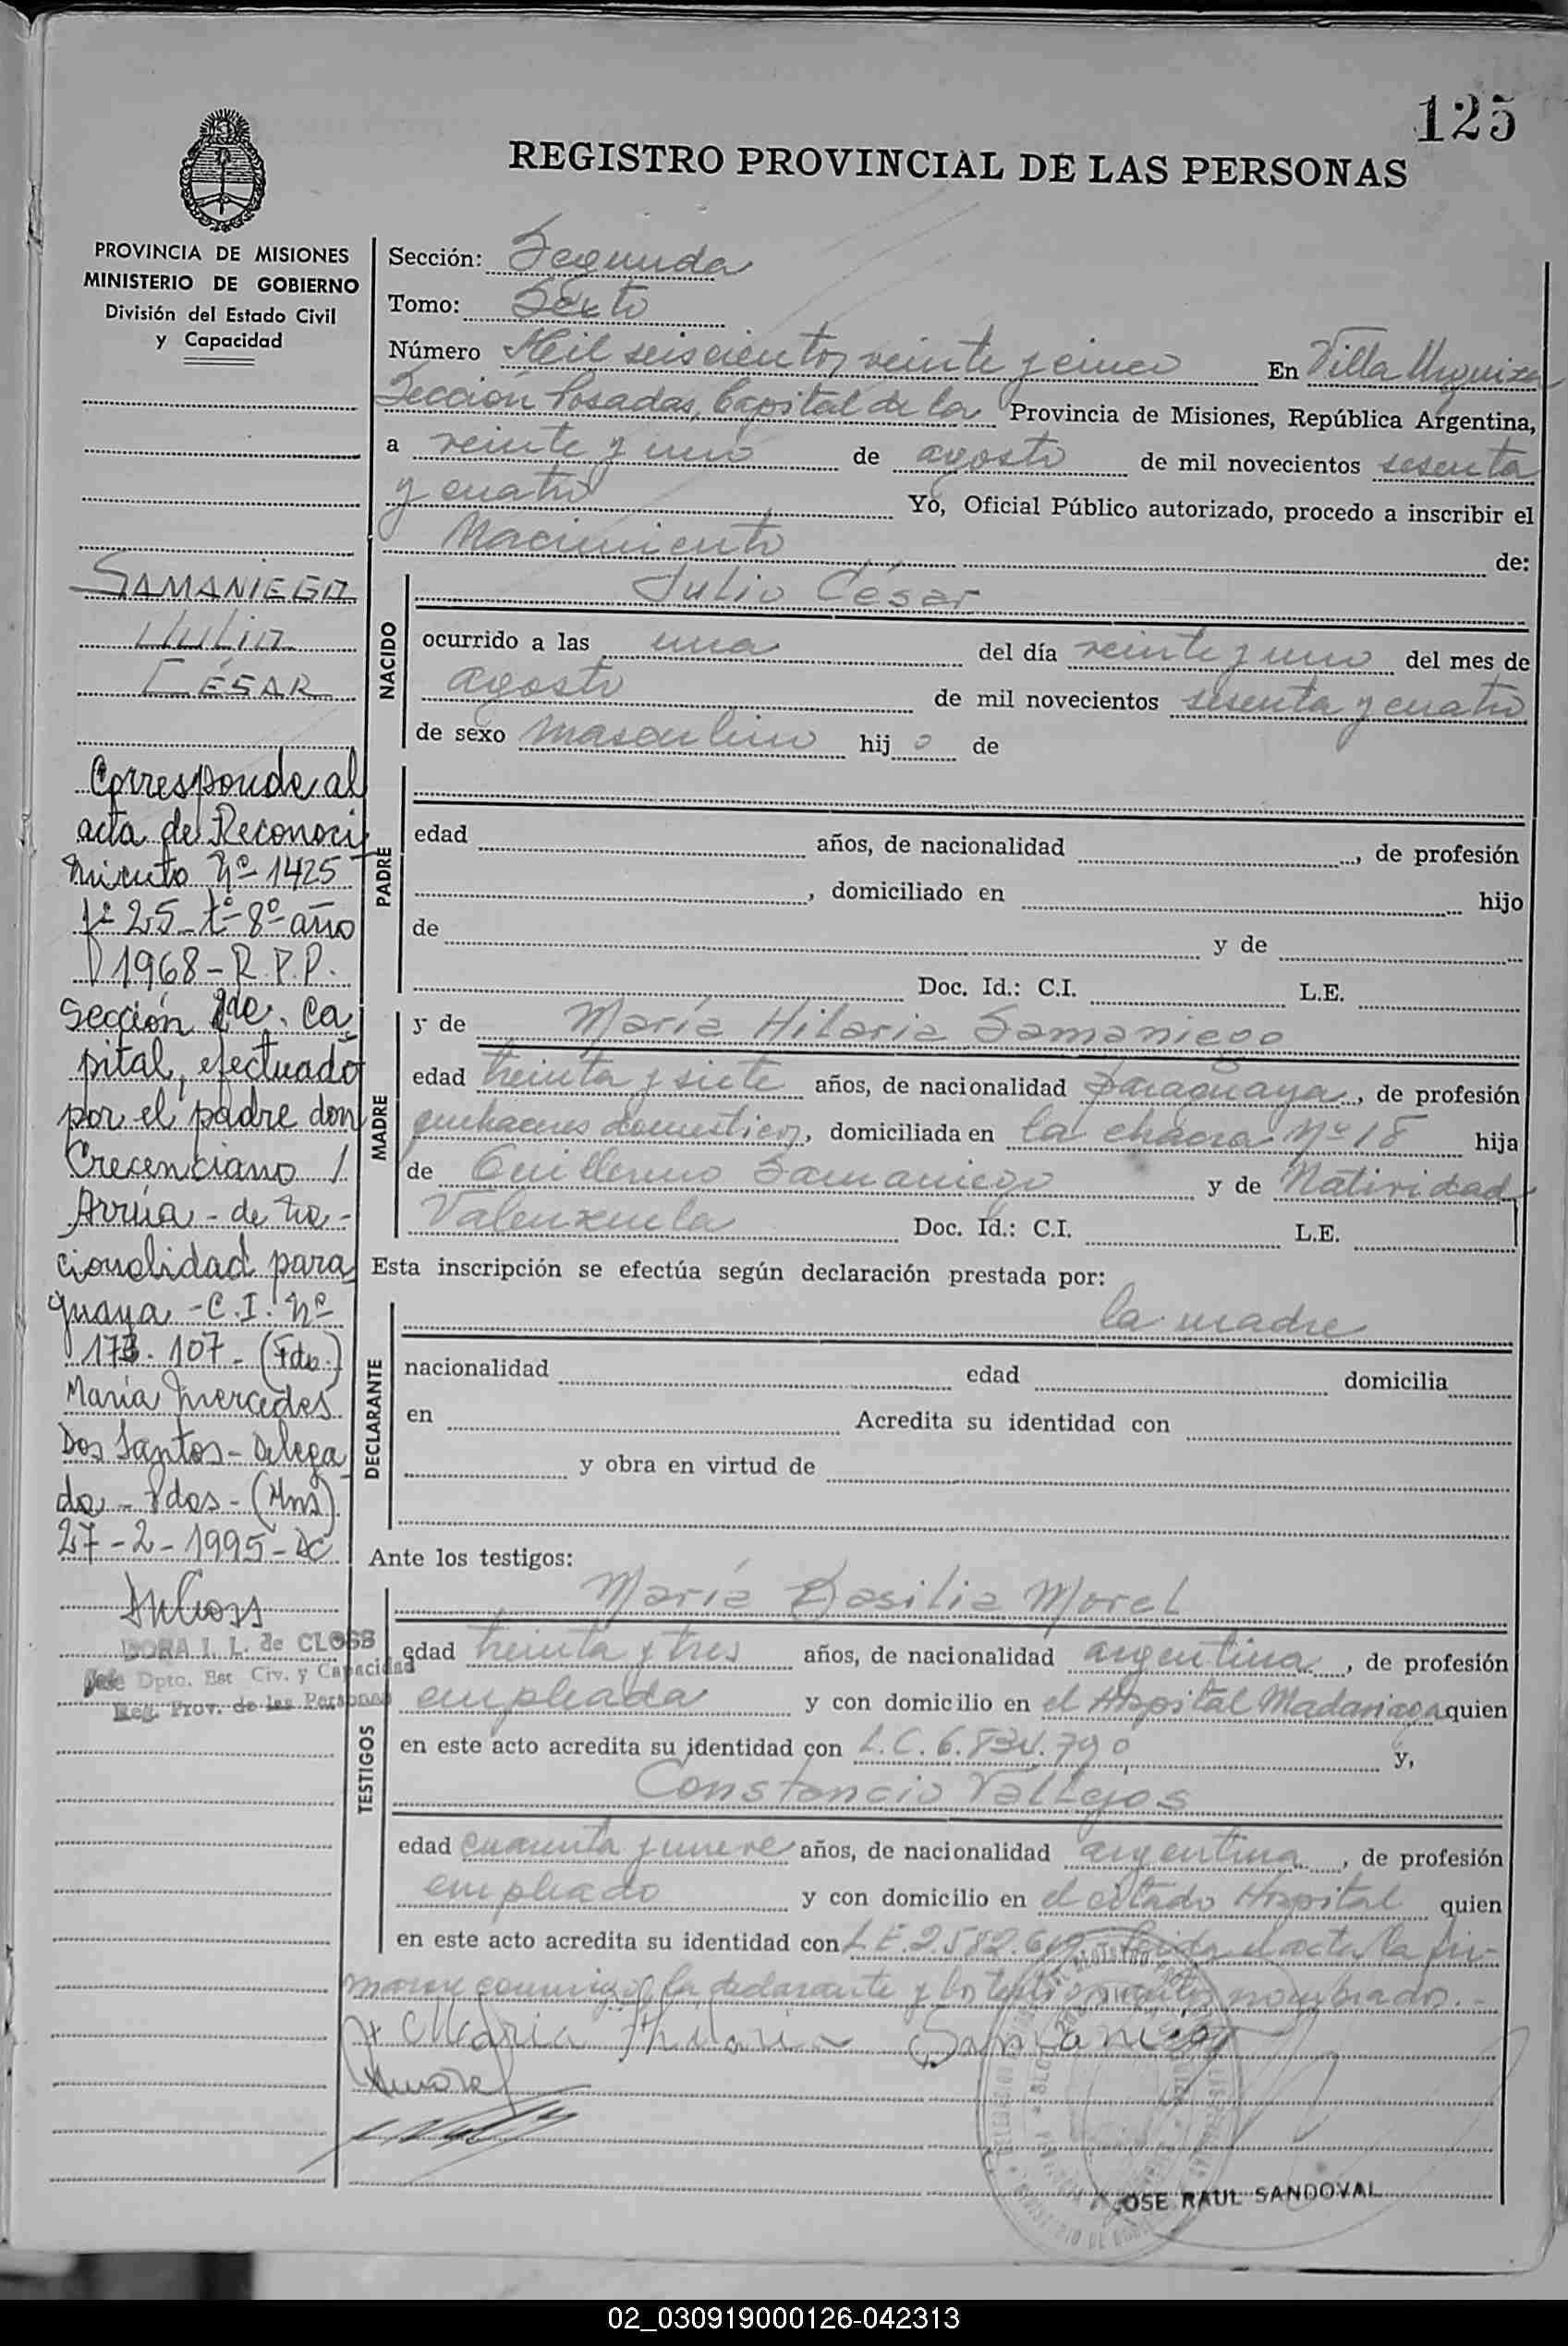 125
REGISTRO PROVINCIAL DE LAS PERSONAS
PROVINCIA DE MISIONES
MINISTERIO DE GOBIERNO
División del Estado Civil
y Capacidad
SAMANIEGO
JULIO
CÉSAR
Corresponde al
acta de Reconoci
miento Nº 1425
fº 25 - tº 8º año
1968 - R.P.P.
Sección 2da. Ca
pital, efectuado
por el padre don
Crecenciano
Arrúa - de na-
cionalidad para
guaya - C.I. Nº
173.107 - (Fdo.)
María Mercedes
Dos Santos - Delega
da - Pdas - (Mns)
27-2-1995 - DC
DORA I. L. de CLOSS
Jefe Dpto. Est. Civ. y Capacidad
Reg. Prov. de las Personas
Sección: Segunda
Tomo: Sexto
Número Mil seiscientos veinte y cinco En Villa Urquiza
Sección Posadas, Capital de la Provincia de Misiones, República Argentina,
a veinte y uno de agosto de mil novecientos sesenta
y cuatro Yo, Oficial Público autorizado, procedo a inscribir el
Nacimiento de:
NACIDO
Julio César
ocurrido a las una del día veinte y uno del mes de
agosto de mil novecientos sesenta y cuatro
de sexo masculino hijo de
PADRE
edad años, de nacionalidad , de profesión
, domiciliado en hijo
de y de
Doc. Id.: C.I. L.E.
MADRE
y de María Hilaria Samaniego
edad treinta y siete años, de nacionalidad paraguaya, de profesión
quehaceres domesticos, domiciliada en la chacra Nº 18 hija
de Guillermo Samaniego y de Natividad
Valenzuela Doc. Id.: C.I. L.E.
Esta inscripción se efectúa según declaración prestada por:
DECLARANTE
la madre
nacionalidad edad domicilia
en Acredita su identidad con
y obra en virtud de
Ante los testigos:
TESTIGOS
María Basilia Morel
edad treinta y tres años, de nacionalidad argentina, de profesión
empleada y con domicilio en el Hospital Madariaga quien
en este acto acredita su identidad con L.C. 6.834.790 y,
Constancio Vallejos
edad cuarenta y nueve años, de nacionalidad argentina, de profesión
empleado y con domicilio en el citado Hospital quien
en este acto acredita su identidad con L.E. 2.582.619. Leida el acta la fir-
maron conmigo la declarante y los testigos nombrados.-
Maria Hilaria Samaniego
JOSE RAUL SANDOVAL
02_030919000126-042313